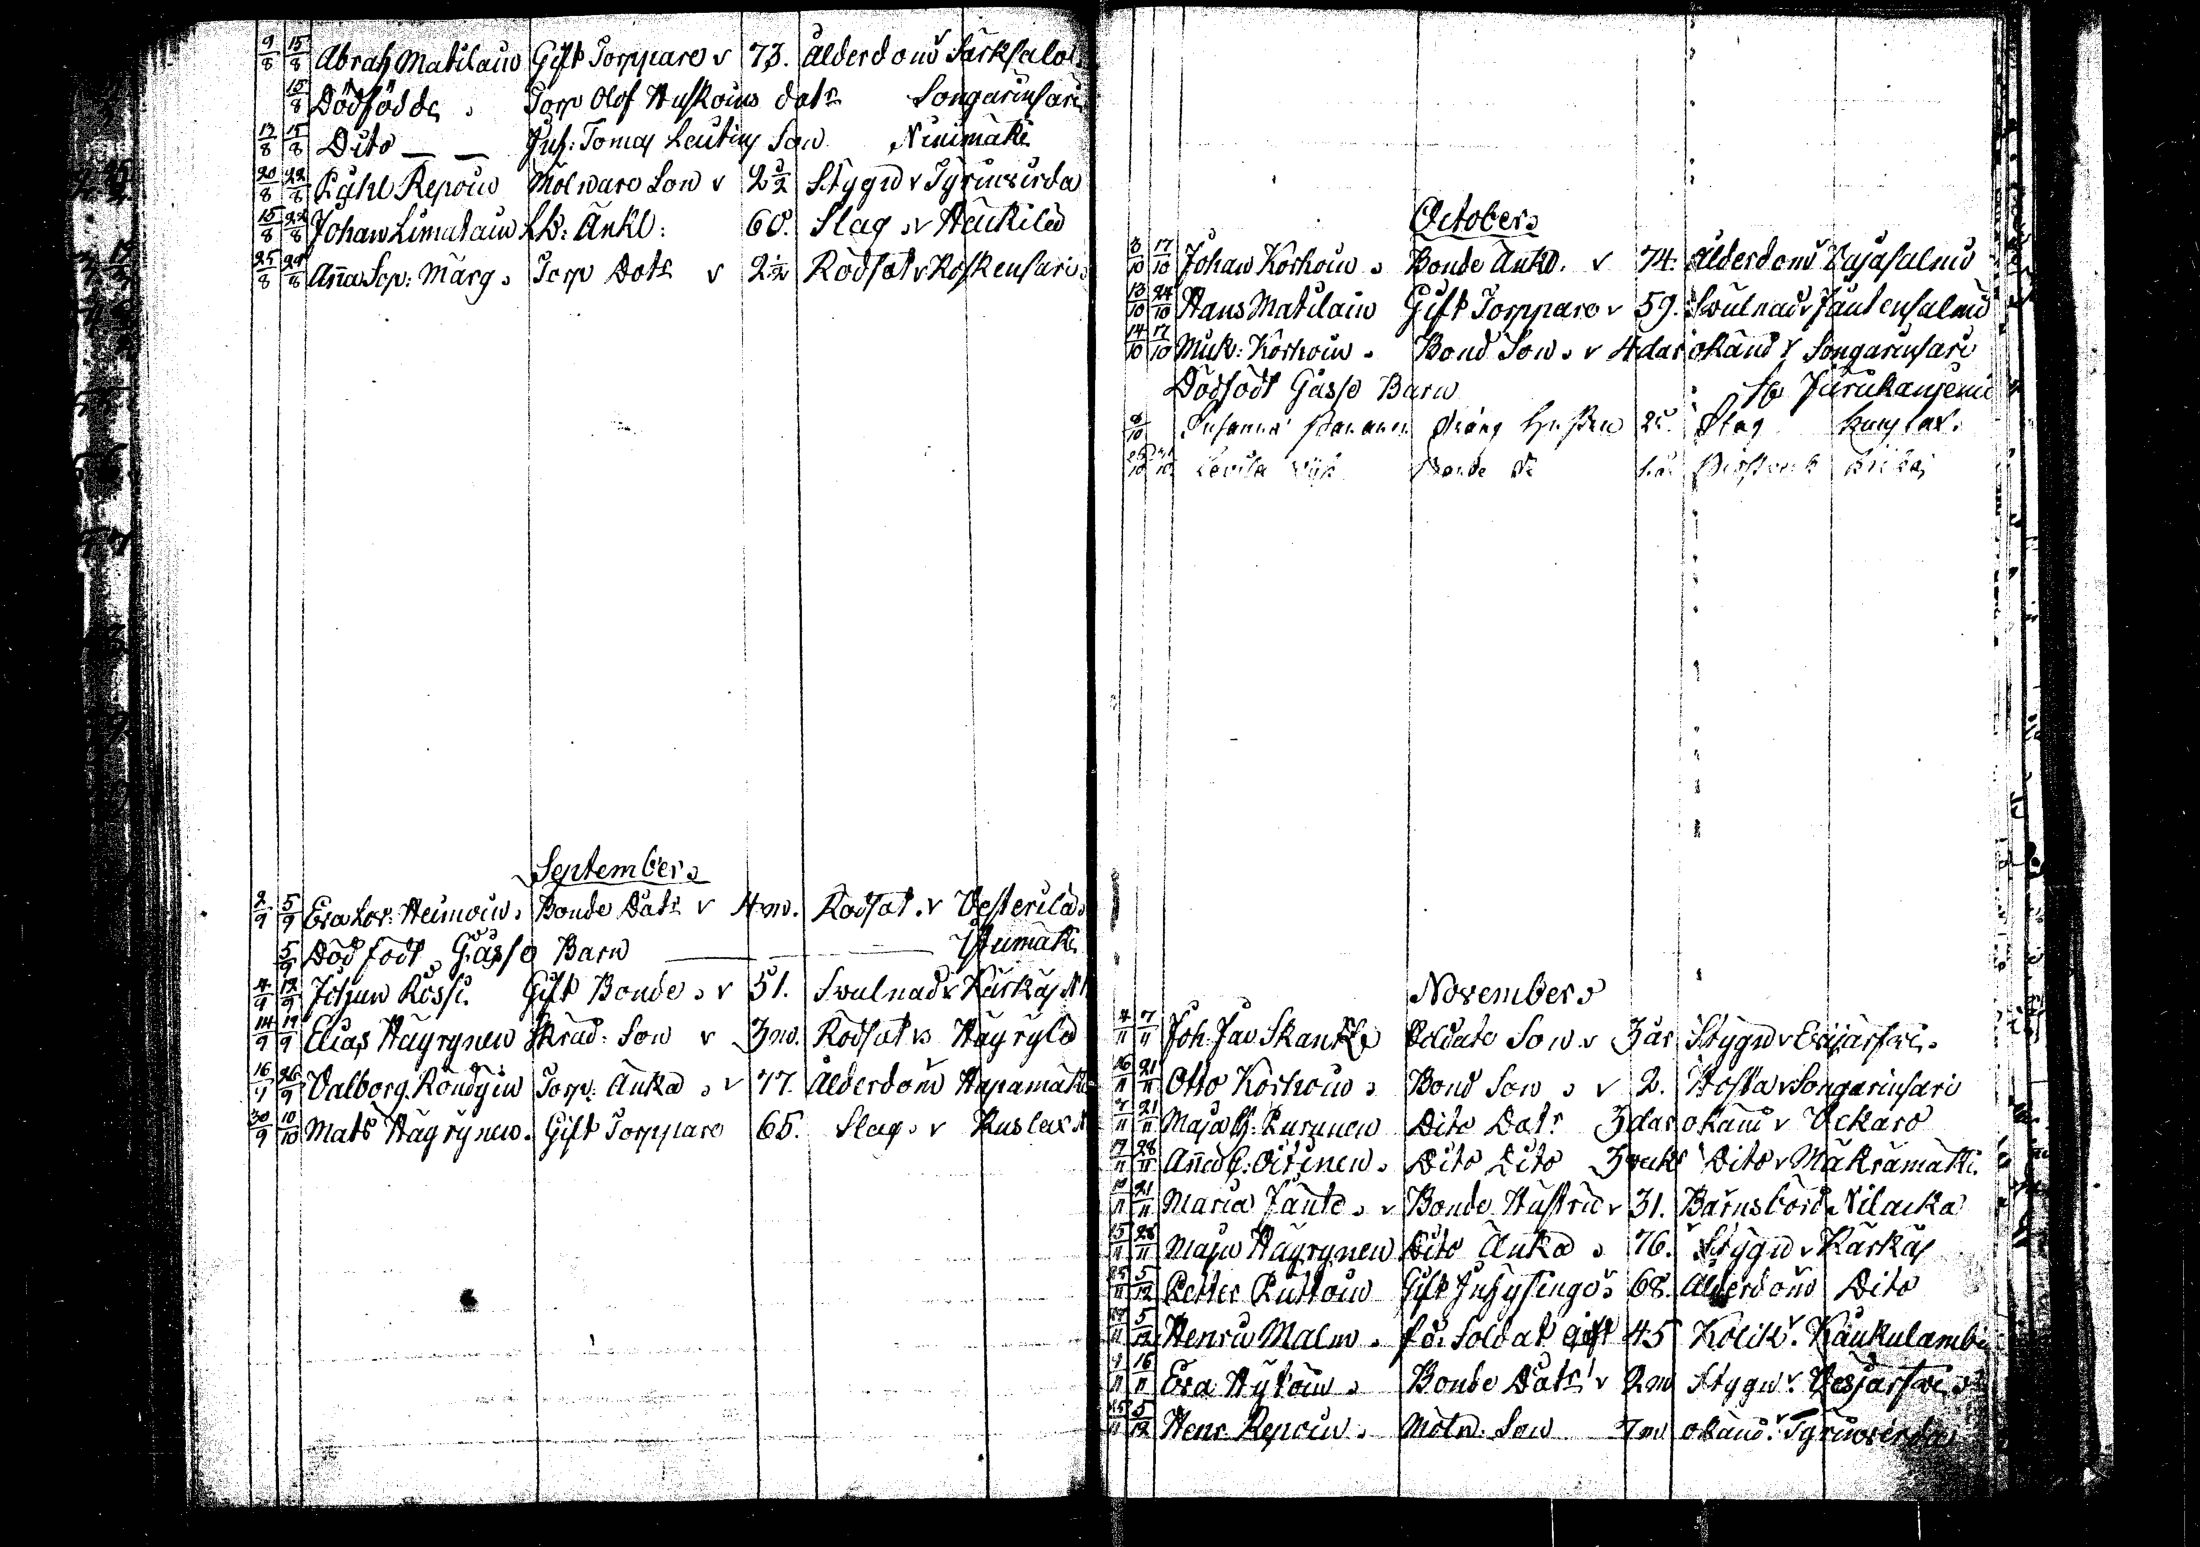 9/8 15/8 Abrah Matilain Gift Torppare v 73. Ålderdom Särksalo
15/8 Dödfödde Torp Olof Huskoins dotr Songarinsari
13/8 15/8 Dito — — Inh: Tomas Leutins Son Ninimäki
20/8 22/8 Påhl Repoin Molnare Son v 2 1/2 Stygn v Tyrinvirda
15/8 22/8 Johan Limatain Enkl: 60. Slag v Häckilä
25/8 29/8 Anna Sop: Marg. Torp Dotr v 2 1/2 Rödsot v Koskensari
September
2/9 5/9 Eva Lov: Heinoin Bonde Datr v 4 m. Rodsot v Vesterilä
5/9 Död född Gåsse Barn ——
4/9 12/9 Johan Rossi. Gift Bonde v 51. Svulnad v Kärkäs
14/9 19/9 Elias Häyrynen Skräd: Son v 3 m. Rodsot v Häyrylä
16/9 26/9 Valborg Röndyin Torp: Änka v 77. Ålderdom Hapamäki
30/9 10/10 Mats Häyrynen. Gift Torppare 65. Slag v Kuslax
October
8/10 17/10 Johan Korhoin Bonde Änkl. v 74. Ålderdom Vajasalmi
13/10 24/10 Hans Matilain Gift Torppare v 59. Svulnad v Jäntensalmi
14/10 17/10 Mik: Korhoin Bond Son v 4 dar okänd v Songarinsari
Dödfödt Gåsse Barn
8/10 Susanna Dräng Hustru Slag
10 10 Bonde
November
4/11 7/11 Joh. Jac Skank Soldate Son v 3 år Stygn v
16/11 21/11 Otto Korhoin Bond Son v 2. Hosta v Songarinsari
7/11 21/11 Maja Kurunen Dito Datr 3 dar okänd v
17/11 28/11 Anna Oitinen Dito Dito 3 veck Dito v Mäkrämäki
21/11 Maria Jänte v Bonde Hustru v 31. Barnsbörd Nilacka
15/11 28/11 Maja Häyrynen Dito Änka 76. Stygn v Kärkäs
25/11 5/12 Petter Puttoin Gift Inhysing 68. Ålderdom Dito
5/12 Henric Malm fö: Soldat Gift 45 Kolik v Kaukulambi
9/11 16/11 Eva Hytöin Bonde Datr v 2 m Stygn v Vesjärfvi
25/11 5/12 Henr Repoin Möln: Son 7 m okänd v Tyrinvirda